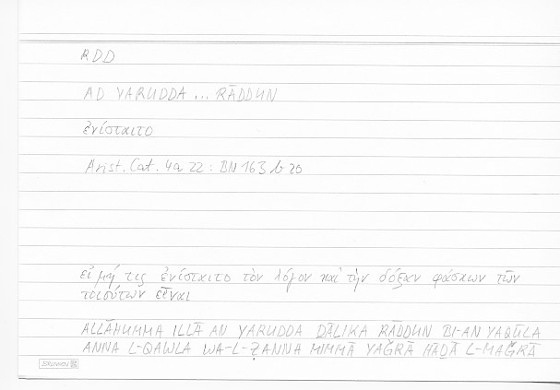 RDD
AD YARUDDA ... RĀDDUN
ἐνίσταιτο
Arist. Cat. 4a 22 : BN 163 b 20
εἰ μή τις ἐνίσταιτο τὸν λόγον καὶ τὴν δόξαν φάσκων τῶν
τοιούτων εἶναι
ALLĀHUMMA ILLĀ AN YARUDDA ḎĀLIKA RĀDDUN BI-AN YAQŪLA
ANNA L-QAWLA WA-L-ẒANNA MIMMĀ YAĞRĀ HĀḎĀ L-MAĞRĀ